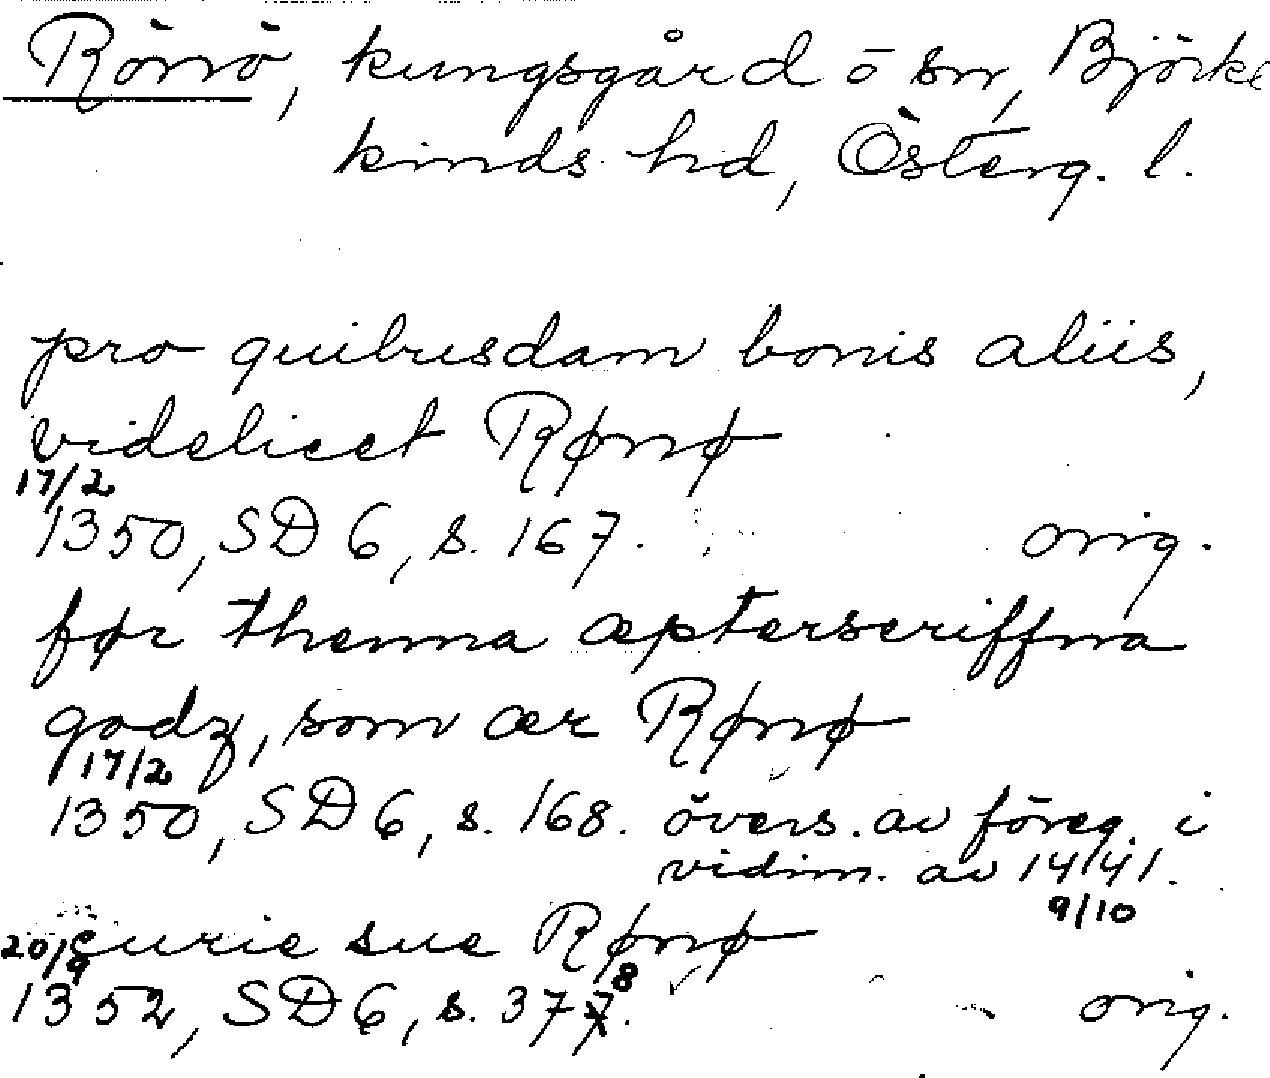 Rönö, kungsgård Ö sn, Björke
kinds hd, Österg. l.
pro quibusdam bonis aliis,
videlicet Rønø
17/2
1350, SD 6, s. 167. orig.
før thenna æpterscriffna
godz, som ær Rønø
17/2
1350, SD 6, s. 168. övers. av föreg. i
vidim. av 1441.
9/10
curie sue Rønø
20/9
1352, SD 6, s. 378. orig.